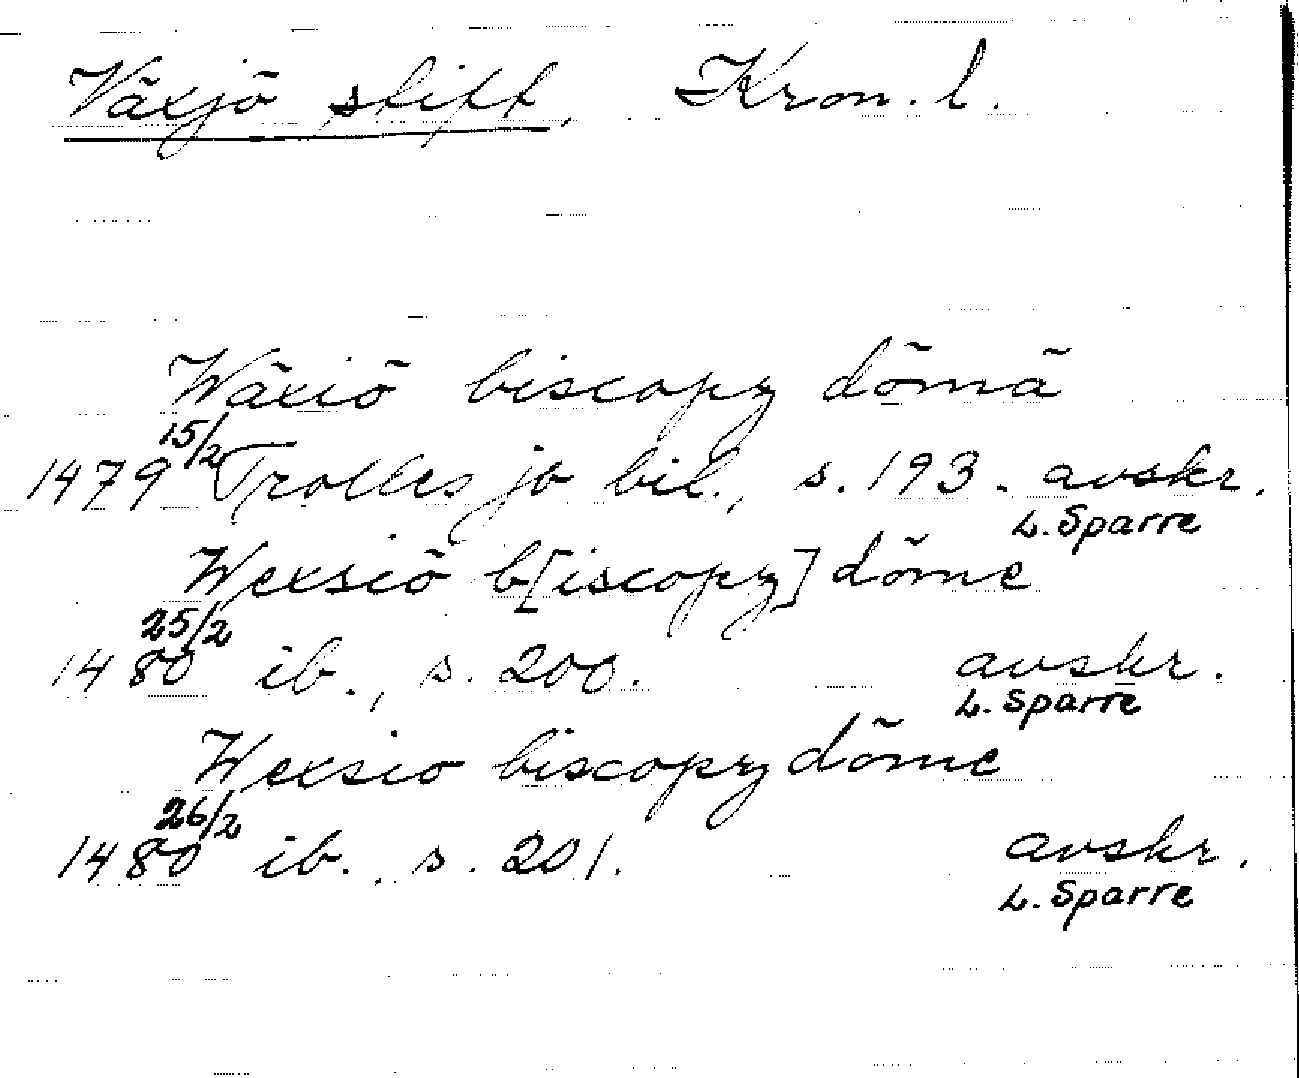 Växjö stift, Kron. l.
Wäxiö biscopz dömä
1479 15/2 Trolles jo bil., s. 193. avskr.
L. Sparre
Wexsiö b[iscopz] döme
1480 25/2 ib., s. 200. avskr.
L. Sparre
Wexsio biscopz döme
1480 26/2 ib., s. 201. avskr.
L. Sparre